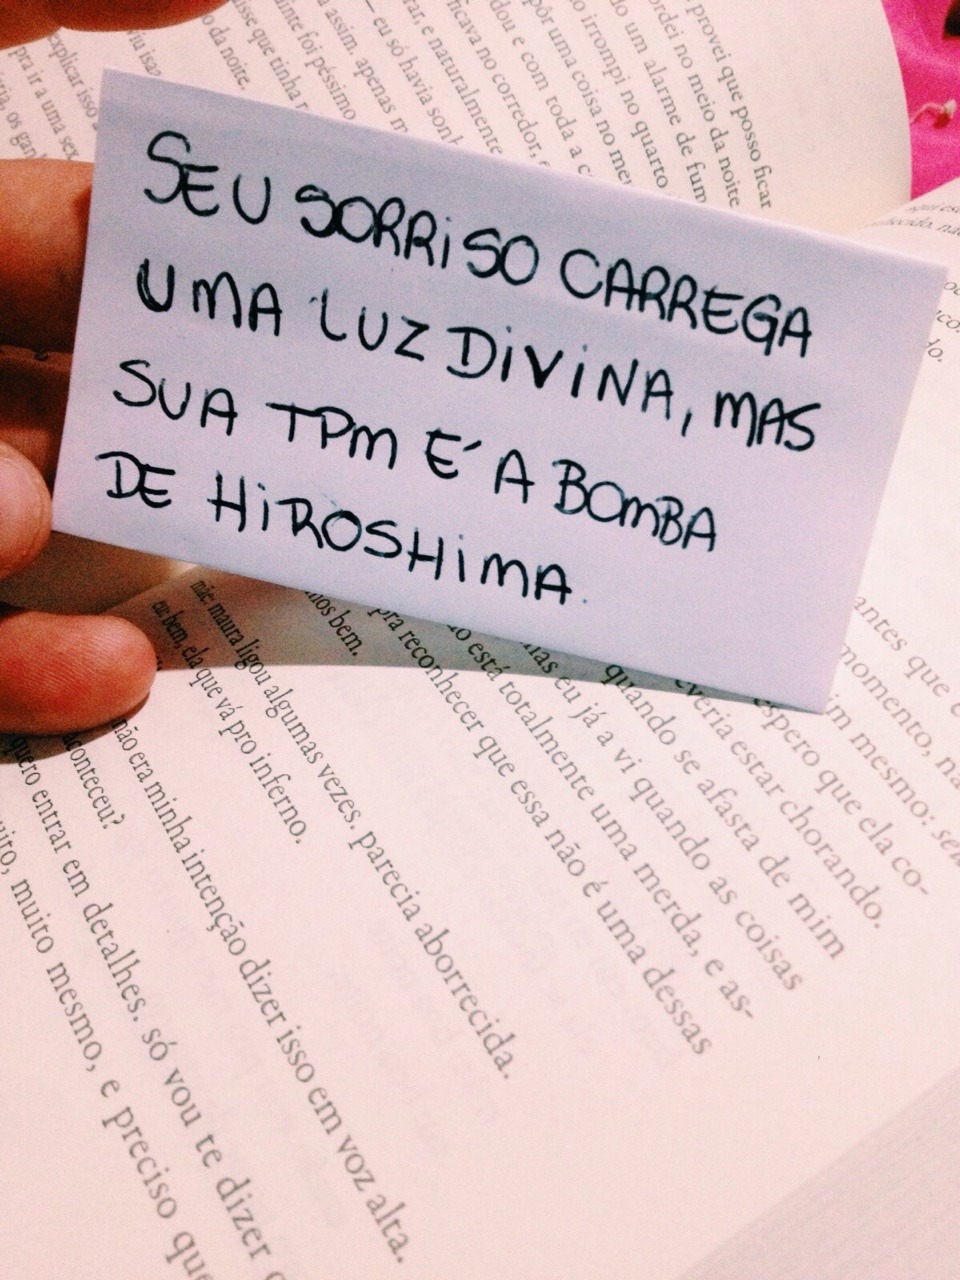 SEU SORRiSO CARREGA
UMA LUZ DiViNA, MAS
SUA TPM É A BOMBA
DE HiROSHiMA.
provei que posso ficar
ordei no meio da noite
um alarme de fum
irrompi no quarto
pôr uma coisa no meu
dou e com toda a c
ficava no corredor,
rar, e naturalmente
— eu só havia sonh
assim. apenas m
inte foi péssimo
isse que tinha
o da noite.
viu isso?
explicar isso
pra ir a uma sex
antes que e
momento, na
im mesmo: sen
espero que ela co-
everia estar chorando.
quando se afasta de mim
mas eu já a vi quando as coisas
o está totalmente uma merda, e as-
pra reconhecer que essa não é uma dessas
mos bem.
mãe: maura ligou algumas vezes. parecia aborrecida.
eu: bem, ela que vá pro inferno.
não era minha intenção dizer isso em voz alta.
aconteceu?
quero entrar em detalhes. só vou te dizer
uito, muito mesmo, e preciso que